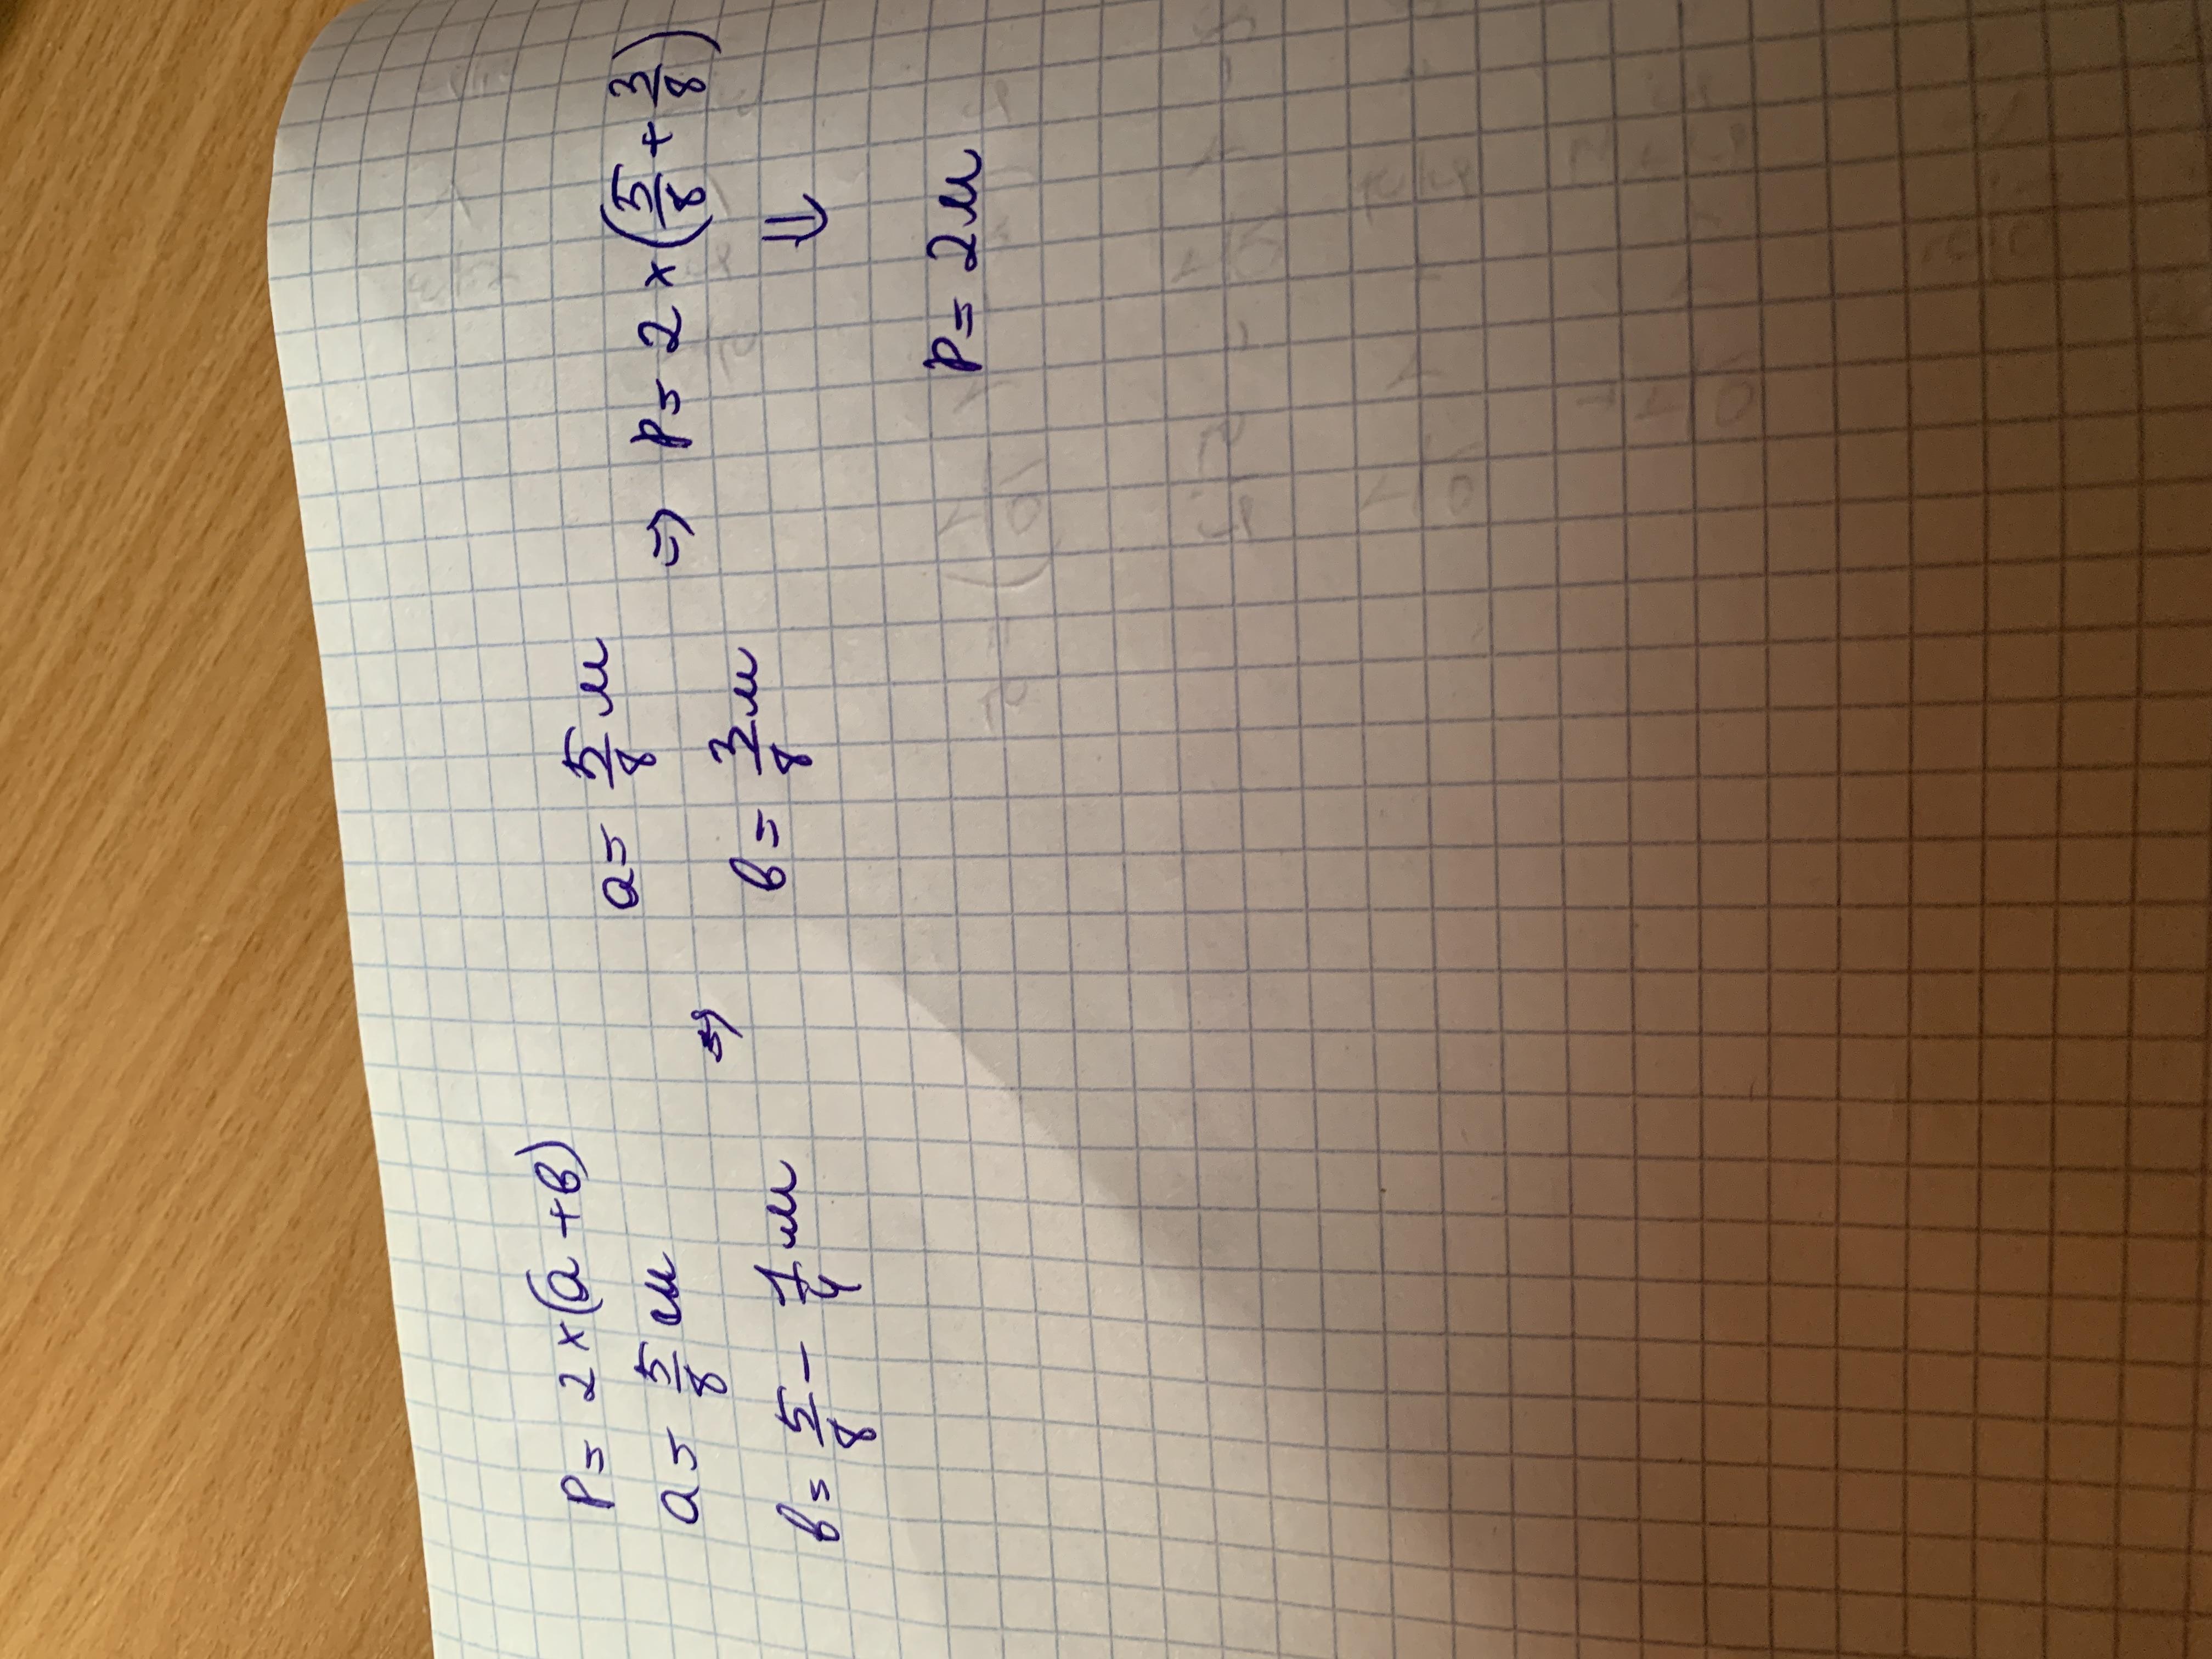 P = 2 × (a + в)
a = 5/8 м
в = 5/8 - 1/4 м
⇒
a = 5/8 м
в = 3/8 м
⇒ P = 2 × (5/8 + 3/8)
⇓
P = 2 м